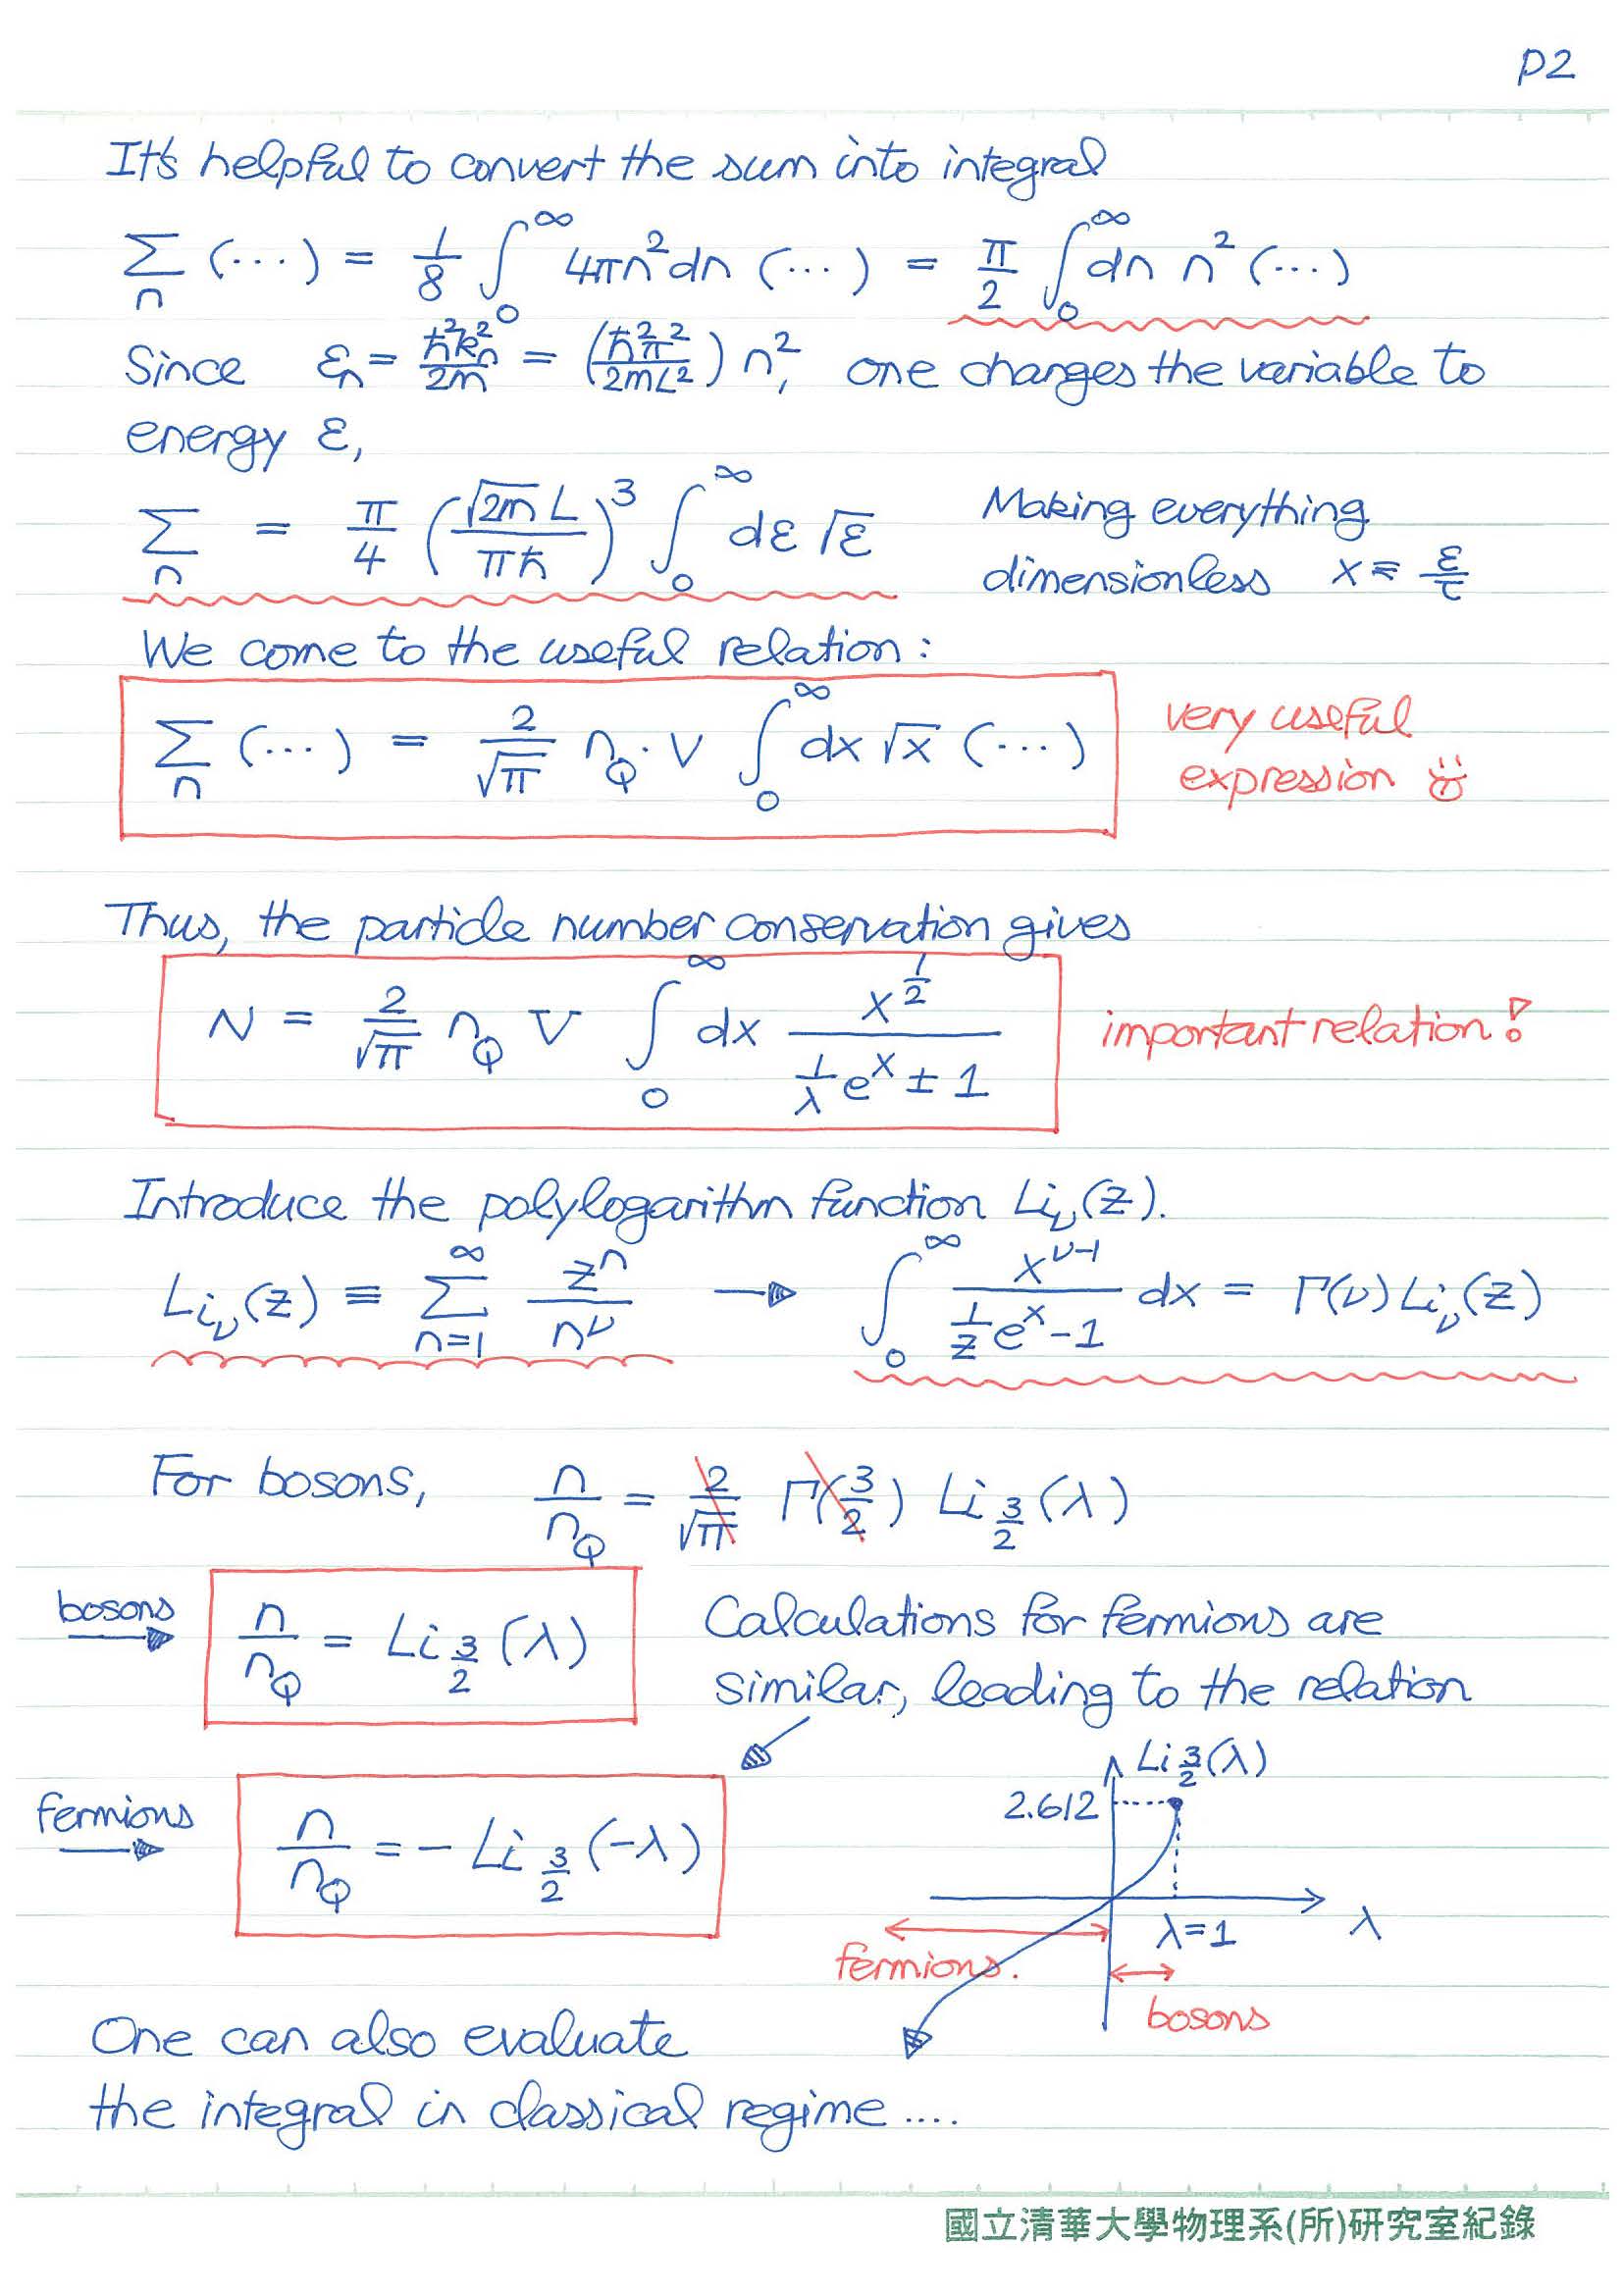 P2
It's helpful to convert the sum into integral
∑_n (...) = 1/8 ∫_0^∞ 4πn² dn (...) = π/2 ∫_0^∞ dn n² (...)
Since ε_n = ħ²k_n²/2m = (ħ²π²/2mL²) n², one changes the variable to
energy ε,
∑_n = π/4 (√2m L/πħ)³ ∫_0^∞ dε √ε
Making everything
dimensionless x ≡ ε/τ
We come to the useful relation:
∑_n (...) = 2/√π n_Q · V ∫_0^∞ dx √x (...)
very useful
expression
Thus, the particle number conservation gives
N = 2/√π n_Q V ∫_0^∞ dx x^(1/2) / (1/λ e^x ± 1)
important relation!
Introduce the polylogarithm function Li_ν(z).
Li_ν(z) ≡ ∑_{n=1}^∞ z^n/n^ν → ∫_0^∞ x^(ν-1) / (1/z e^x - 1) dx = Γ(ν) Li_ν(z)
For bosons, n/n_Q = 2/√π Γ(3/2) Li_{3/2}(λ)
bosons
n/n_Q = Li_{3/2}(λ)
Calculations for fermions are
similar, leading to the relation
fermions
n/n_Q = - Li_{3/2}(-λ)
Li_{3/2}(λ)
2.612
λ
λ=1
fermions.
bosons
One can also evaluate
the integral in classical regime ....
國立清華大學物理系(所)研究室紀錄